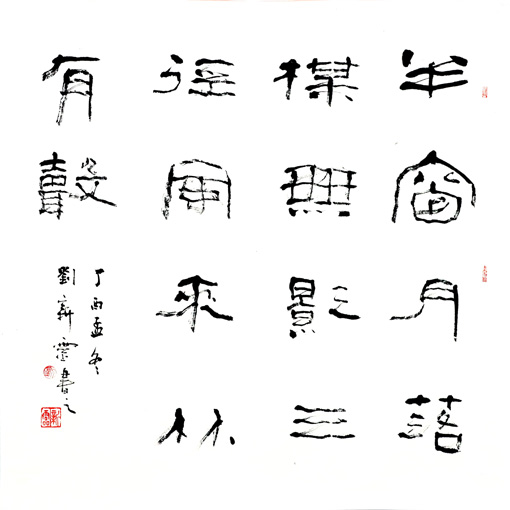 半窗月落
楳無影三
徑風來竹
有聲
丁酉孟冬
劉新書之